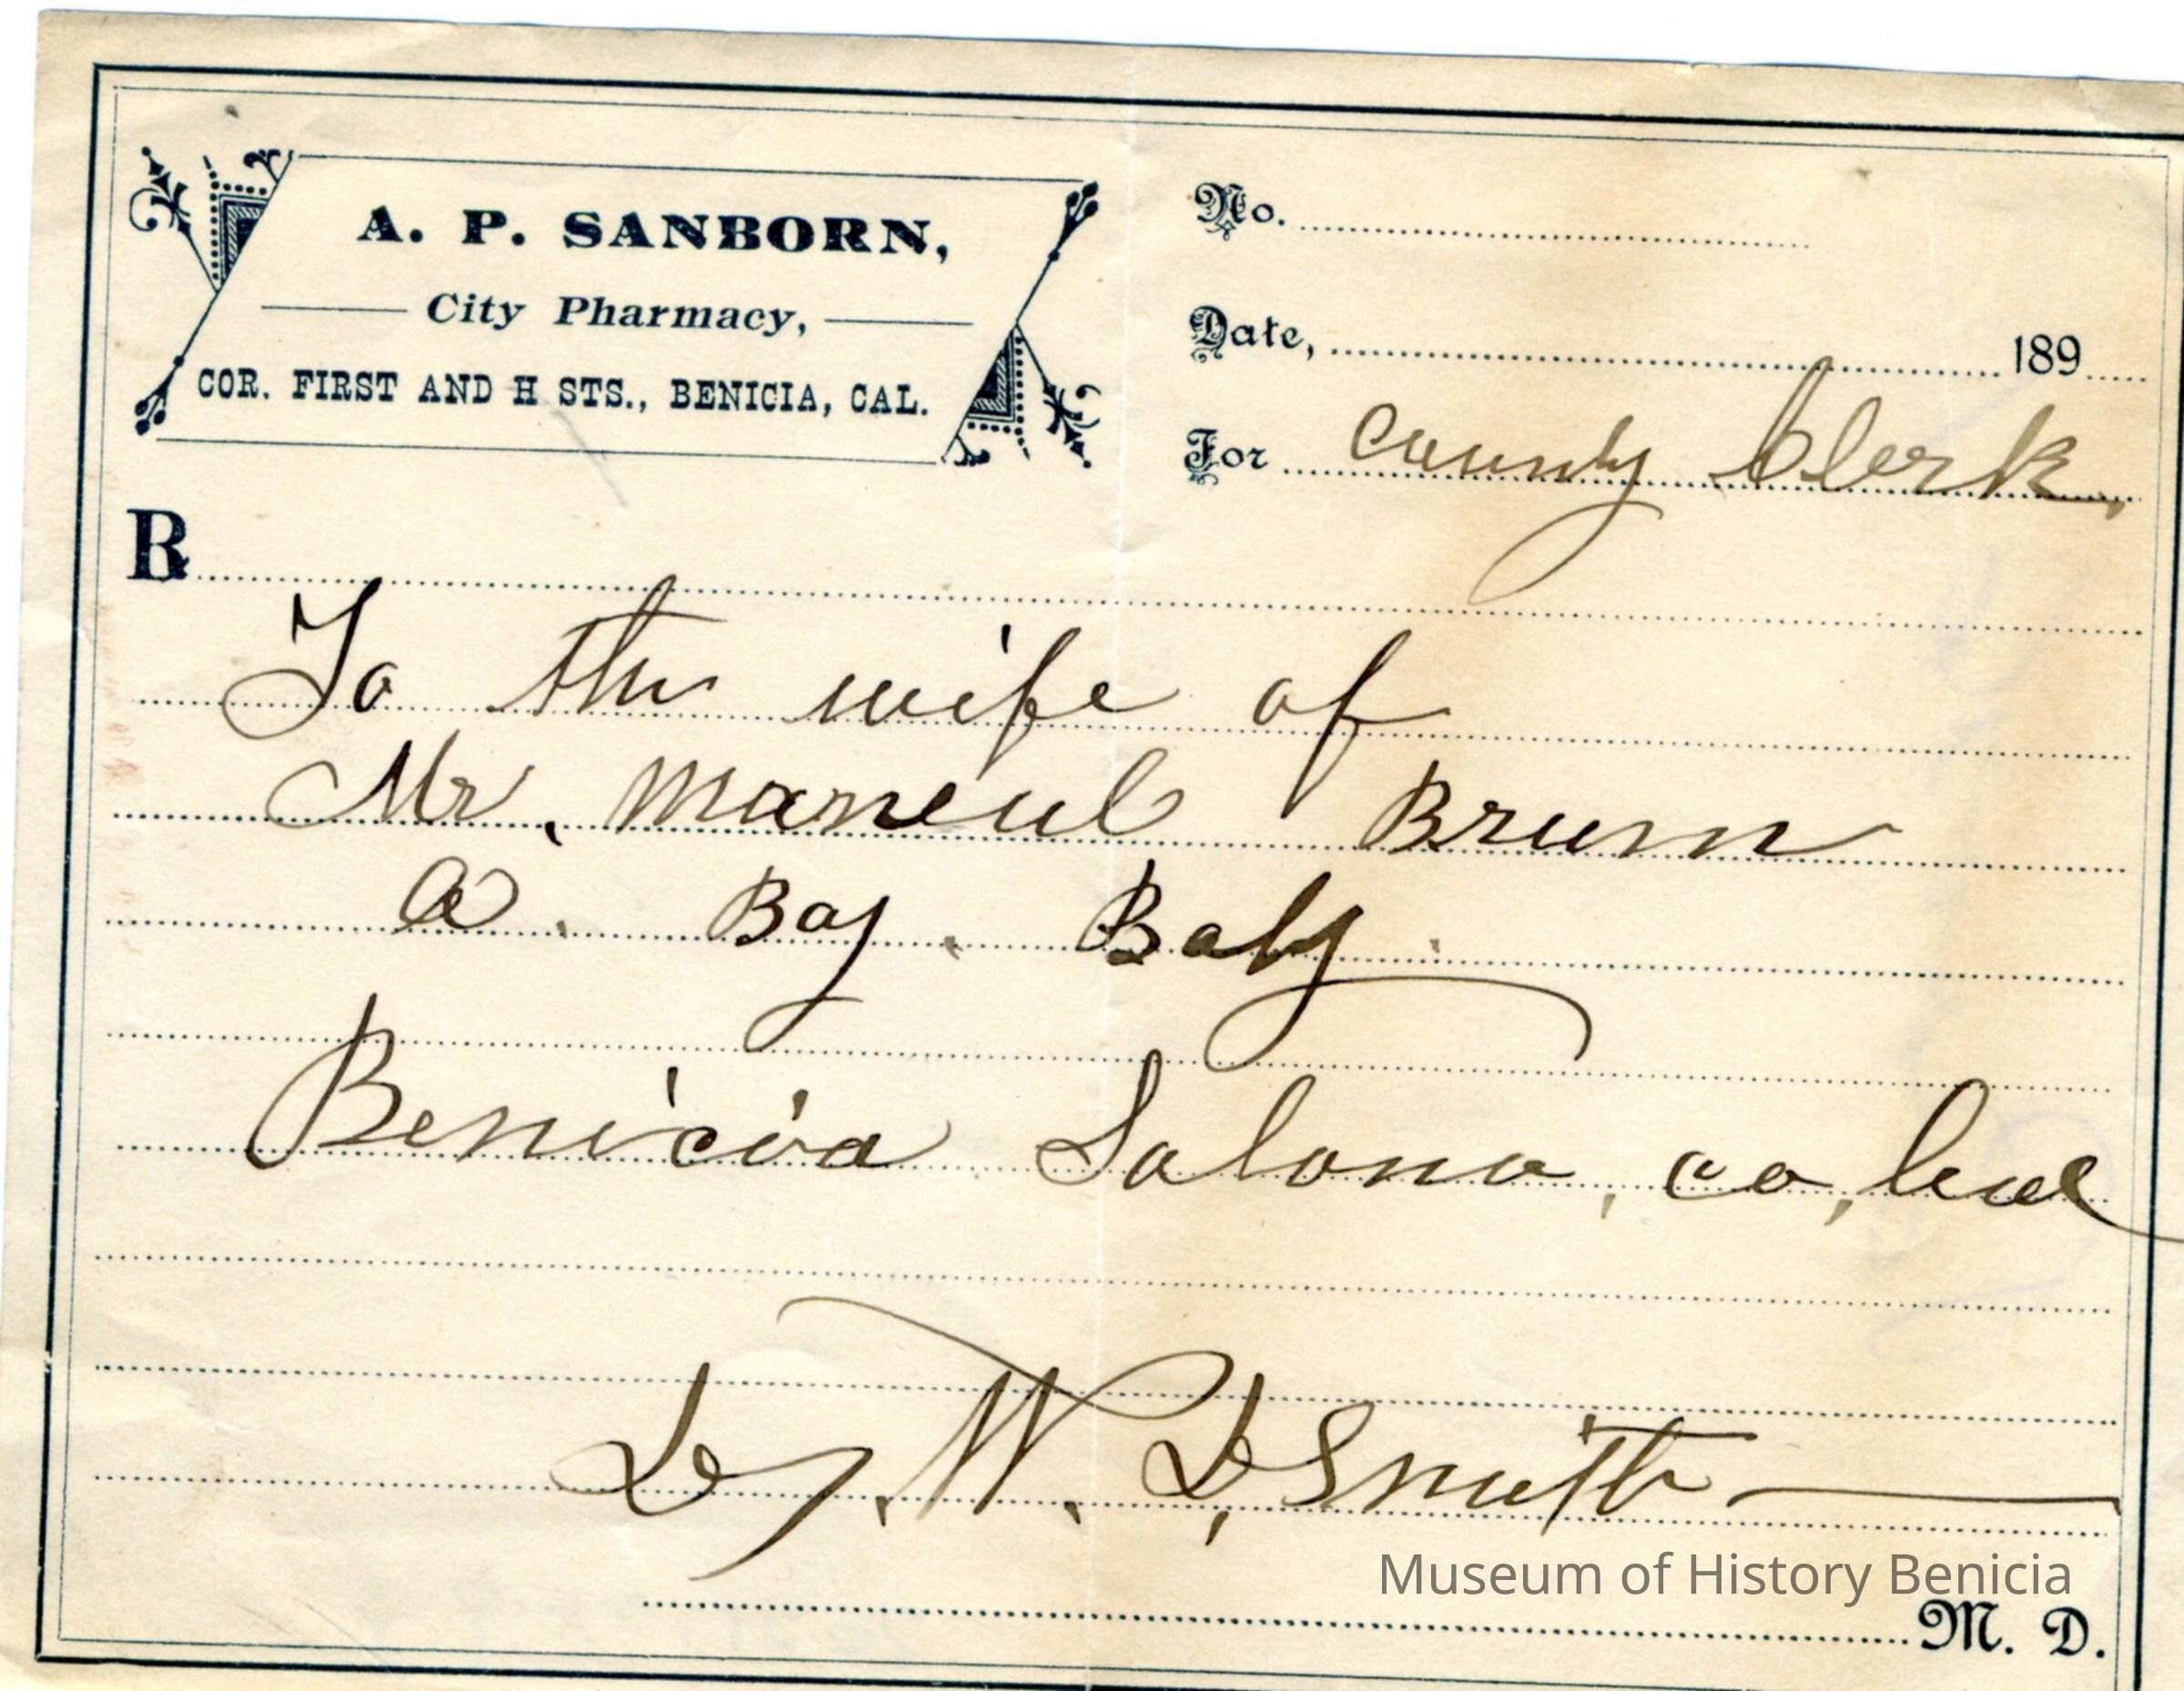 A. P. SANBORN,
City Pharmacy,
COR. FIRST AND H STS., BENICIA, CAL.
No.
Date, 189
For County Clerk,
R
To the wife of
Mr. Maneul Brum
A. Boy. Baby.
Benicia Solano, co, Cal
Dr. W. D, Smith
Museum of History Benicia
M. D.